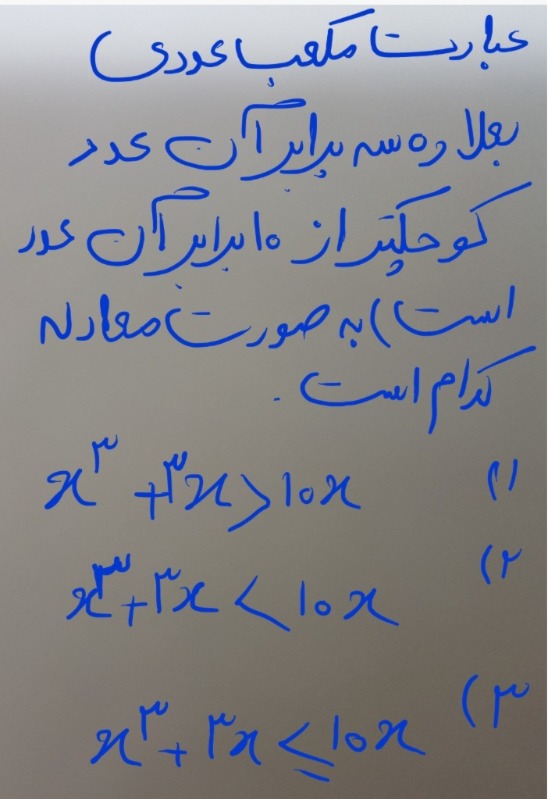 عبارت مکعب عددی)
بعلاوه سه برابر آن عدد
کوچکتر از ۱۰ برابر آن عدد
است) به صورت معادله
کدام است.
۱) x³ + ۳x > ۱۰x
۲) x³ + ۳x < ۱۰x
۳) x³ + ۳x ≤ ۱۰x